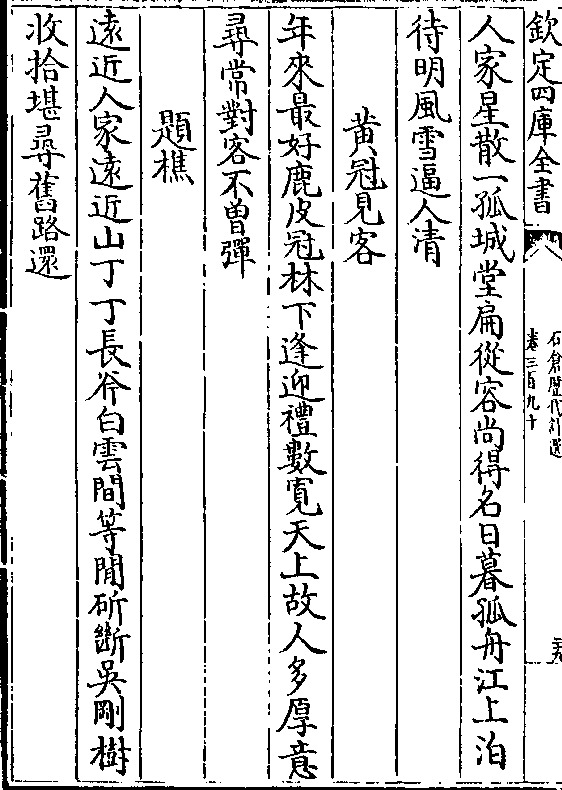 欽定四庫全書
石倉歷代詩選
卷三百九十
人家星散一孤城堂扁從容尚得名日暮孤舟江上泊
待明風雪逼人清
黄冠見客
年來最好鹿皮冠林下逢迎禮數寛天上故人多厚意
尋常對客不曽彈
題樵
遠近人家遠近山丁丁長斧白雲間等閒斫斷吳剛樹
收拾堪尋舊路還